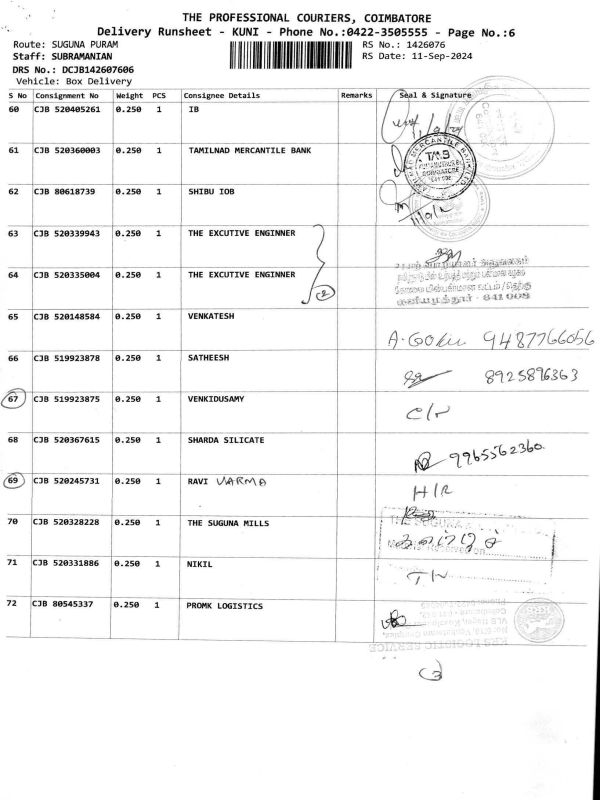 THE PROFESSIONAL COURIERS, COIMBATORE
Delivery Runsheet - KUNI - Phone No.:0422-3505555 - Page No.:6
Route: SUGUNA PURAM RS No.: 1426076
Staff: SUBRAMANIAN RS Date: 11-Sep-2024
DRS No.: DCJB142607606
Vehicle: Box Delivery
S No Consignment No Weight PCS Consignee Details Remarks Seal & Signature
60 CJB 520405261 0.250 1 IB
61 CJB 520360003 0.250 1 TAMILNAD MERCANTILE BANK
TMB
62 CJB 80618739 0.250 1 SHIBU IOB
63 CJB 520339943 0.250 1 THE EXCUTIVE ENGINNER
64 CJB 520335004 0.250 1 THE EXCUTIVE ENGINNER
2
65 CJB 520148584 0.250 1 VENKATESH
9487766056
66 CJB 519923878 0.250 1 SATHEESH
8925896363
67 CJB 519923875 0.250 1 VENKIDUSAMY
68 CJB 520367615 0.250 1 SHARDA SILICATE
9965562360
69 CJB 520245731 0.250 1 RAVI VARMA
70 CJB 520328228 0.250 1 THE SUGUNA MILLS
71 CJB 520331886 0.250 1 NIKIL
72 CJB 80545337 0.250 1 PROMK LOGISTICS